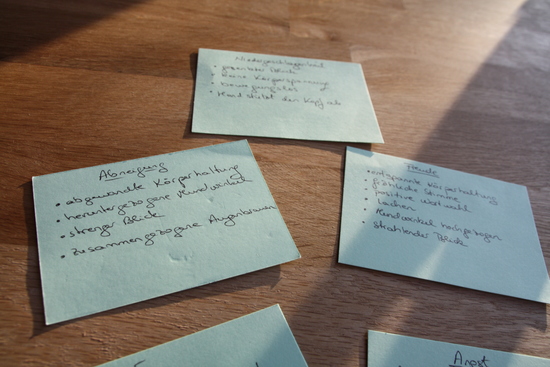 Niedergeschlagenheit
• gesenkter Blick
• keine Körperspannung
• bewegungslos
• Hand stützt den Kopf ab
Abneigung
• abgewandte Körperhaltung
• heruntergezogene Mundwinkel
• strenger Blick
• zusammengezogene Augenbrauen
Freude
• entspannte Körperhaltung
• fröhliche Stimme
• positive
• Lachen
• Mundwinkel hochgezogen
• strahlender Blick
Angst